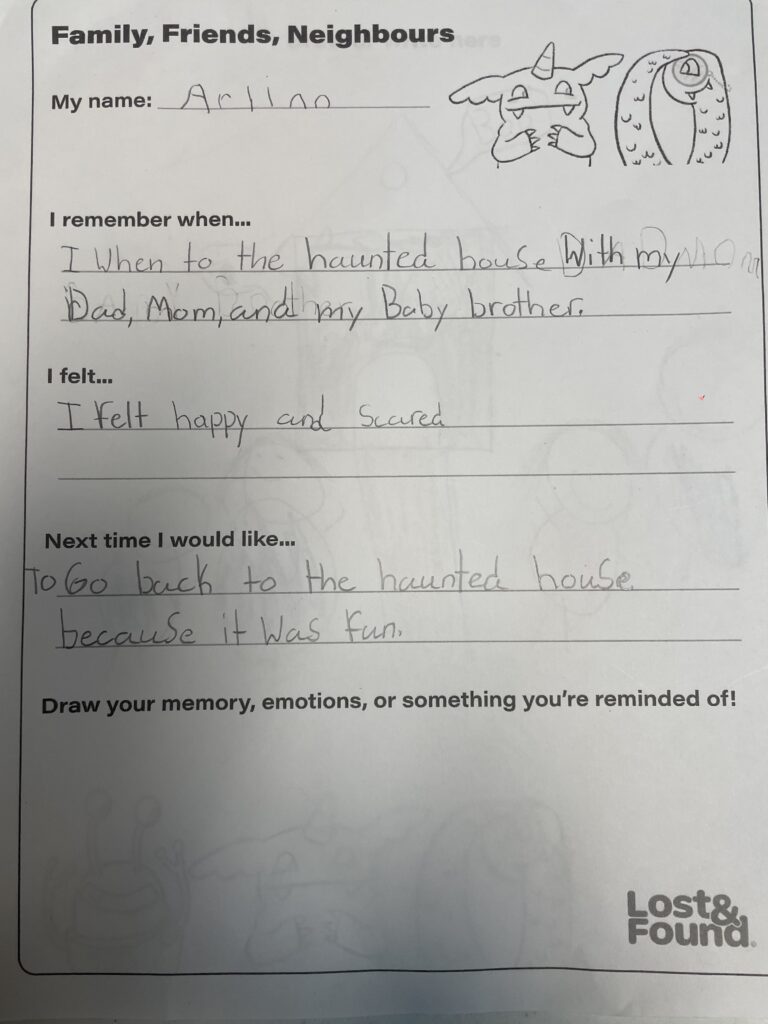 Family, Friends, Neighbours
My name: Arlino
I remember when...
I When to the haunted house With my
Dad, Mom, and my Baby brother.
I felt...
I felt happy and Scared
Next time I would like...
To Go back to the haunted house.
because it was fun.
Draw your memory, emotions, or something you're reminded of!
Lost&
Found®